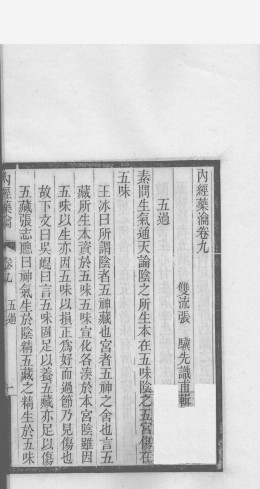 內經藥瀹卷九
雙流張 驥先識甫輯
五過
素問生氣通天論陰之所生本在五味陰之五宮傷在
五味
王冰曰所謂陰者五神藏也宮者五神之舍也言五
藏所生本資於五味五味宣化各湊於本宮陰雖因
五味以生亦因五味以損正為好而過節乃見傷也
故下文曰吳崐曰言五味固足以養五藏亦足以傷
五藏張志聰曰神氣生於陰精五藏之精生於五味
內經藥瀹 卷九 五過 一